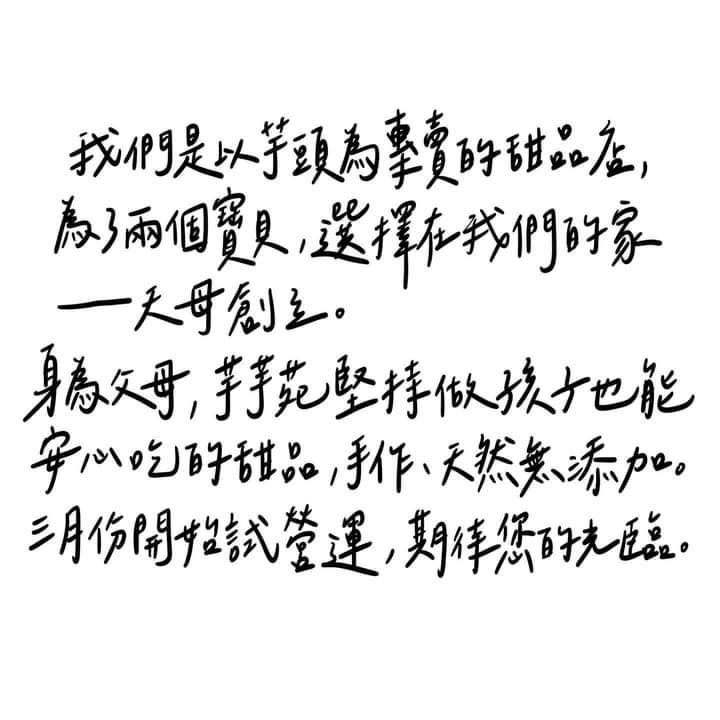 我們是以芋頭為專賣的甜品店,
為了兩個寶貝,選擇在我們的家
──天母創立。
身為父母,芋芋苑堅持做孩子也能
安心吃的甜品,手作、天然無添加。
三月份開始試營運,期待您的光臨。